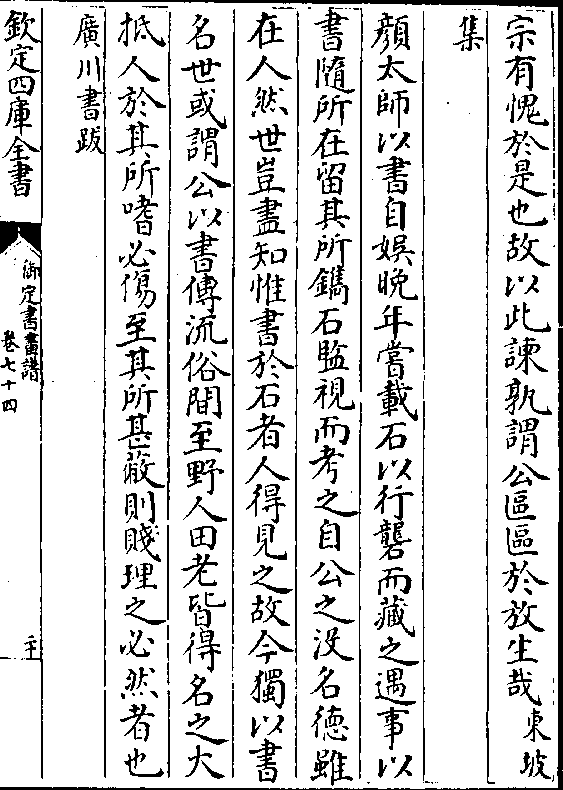 宗有愧於是也故以此諫孰謂公區區於放生哉東坡
集
顔太師以書自娛晩年嘗載石以行礱而藏之遇事以
書隨所在留其所鐫石監視而考之自公之没名德雖
在人然世豈盡知惟書於石者人得見之故今獨以書
名世或謂公以書傳流俗間至野人田老皆得名之大
抵人於其所嗜必傷至其所甚蔽則賤理之必然者也
廣川書跋
欽定四庫全書
御定書畫譜
卷七十四